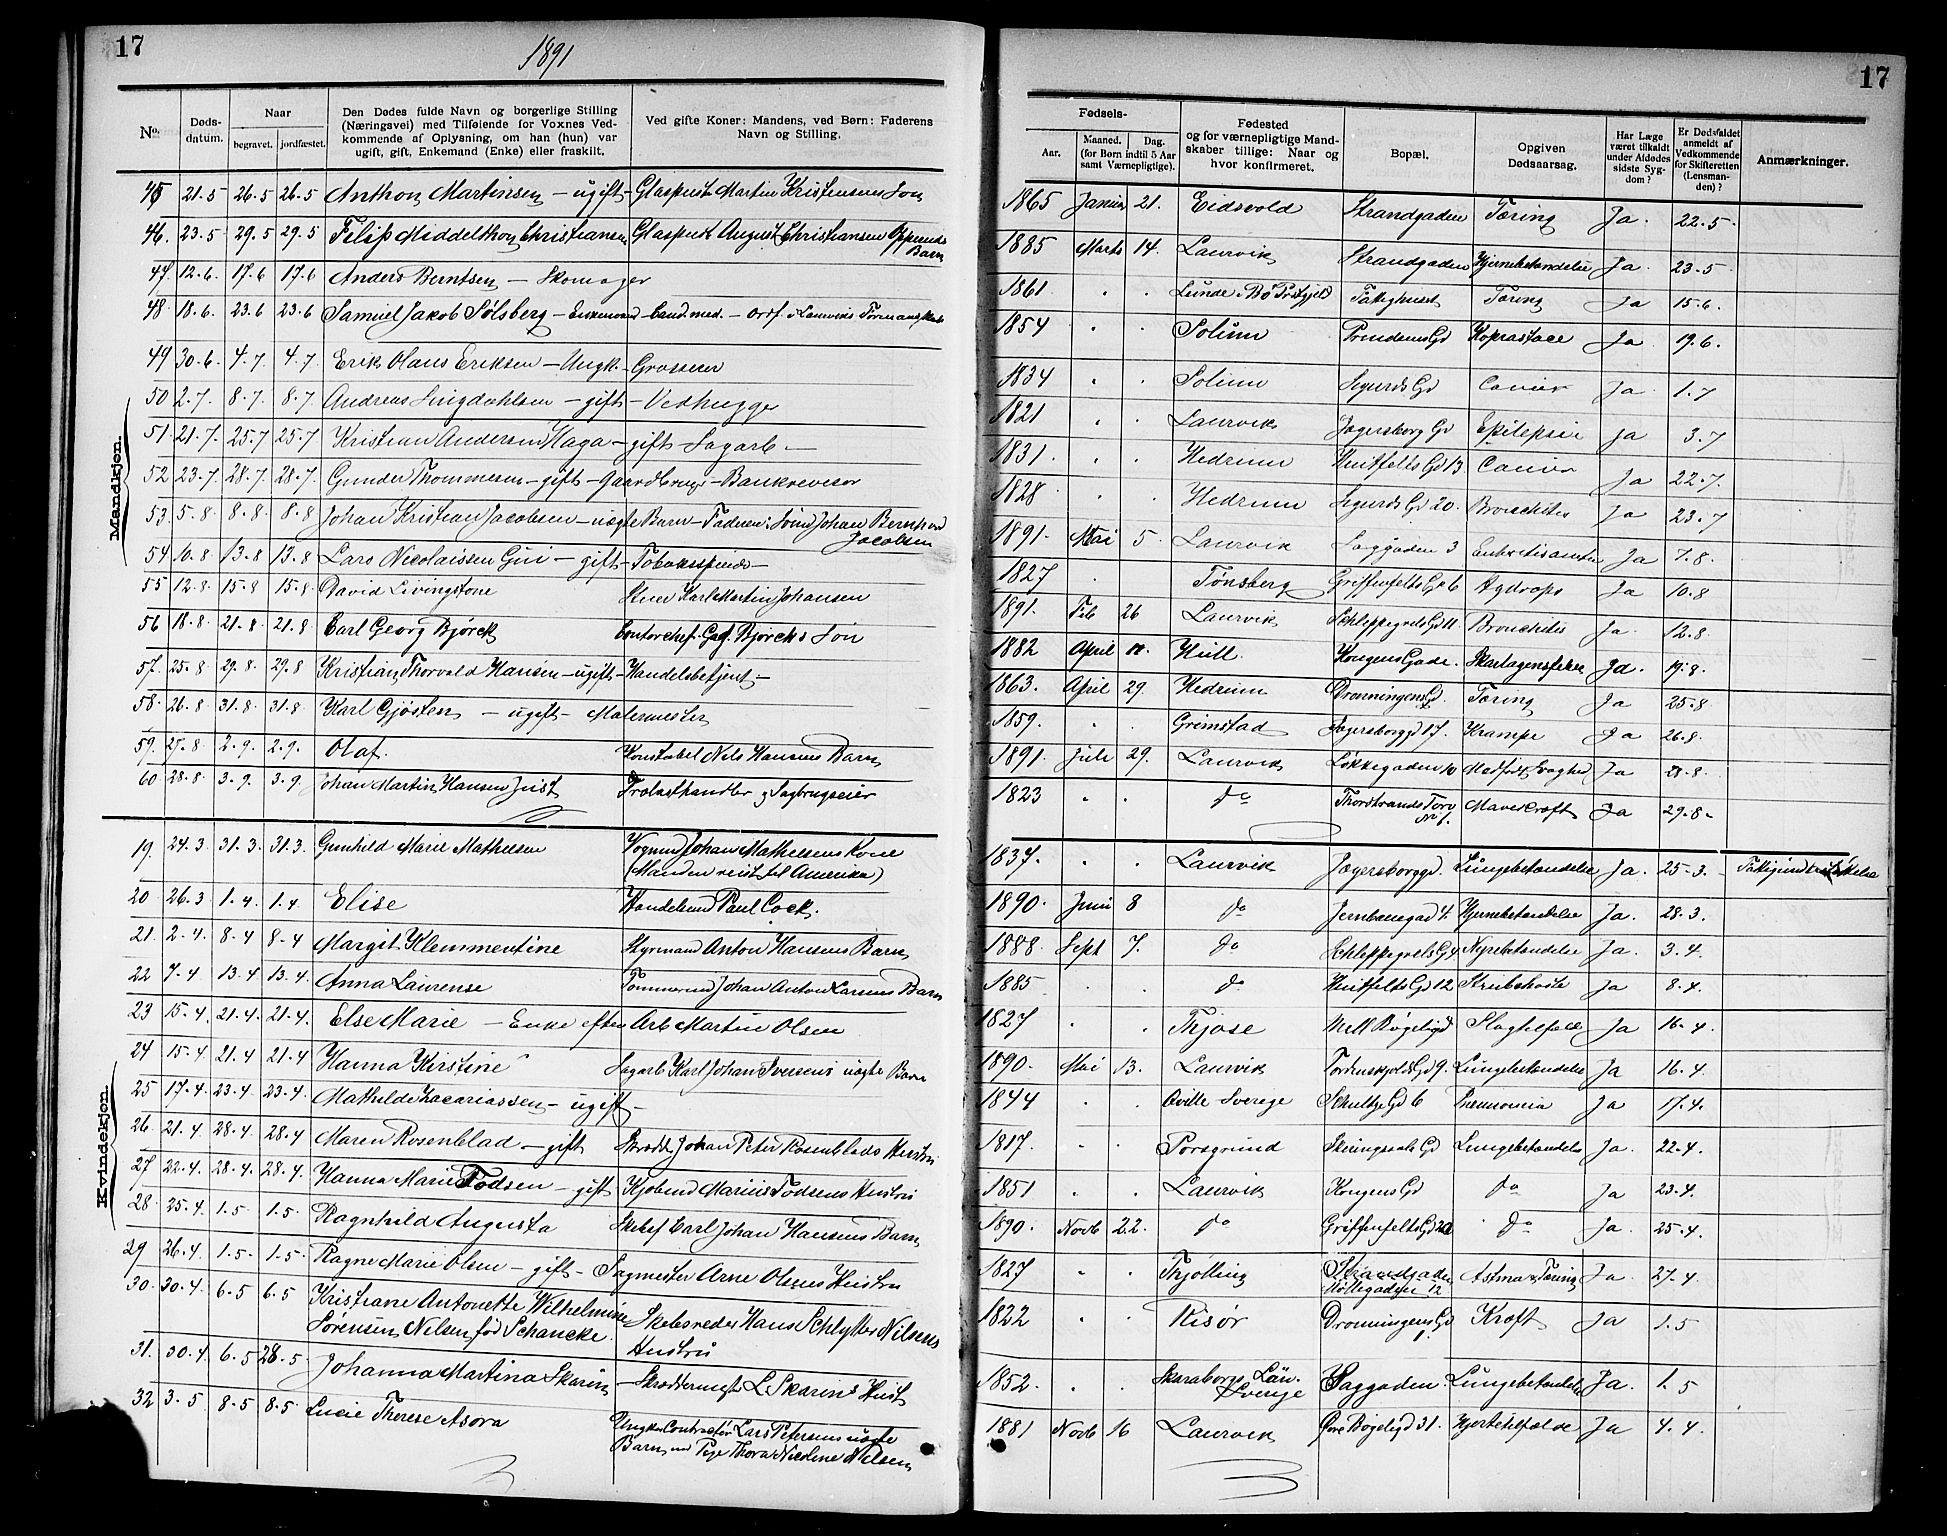 17
1891
No.
Døds-
datum.
Naar
begravet. jordfæstet.
Den Dødes fulde Navn og borgerlige Stilling
(Næringsvei) med Tilføiende for Voxnes Ved-
kommende af Oplysning, om han (hun) var
ugift, gift, Enkemand (Enke) eller fraskilt.
Ved gifte Koner: Mandens, ved Børn: Faderens
Navn og Stilling.
Mandkjøn.
45 21.5 26.5 26.5 Anthon Martinsen – ugift – Glaspust Martin Kristensens Søn
46. 23.5 29.5 29.5 Filip Middelthon Christiansen Glaspust August Christiansen
Barn
47. 12.6. 17.6 17.6 Anders Berntsen – Skomager
48. 18.6. 23.6 23.6 Samuel Jakob Sølsberg – Enkemand – Cand.med. – Laurviks
49 30.6. 4.7 4.7 Erik Olaus Eriksen – Ungk. – Grosserer
50 2.7. 8.7. 8.7 Andreas Lingdahlsen – gift – Vedhugger
51. 21.7. 25.7 25.7 Kristian Andersen Haga – gift – Sagarb –
52 23.7. 28.7. 28.7. Gunder Thommesen – gift – Gaardbruger – Bankrevisor
53. 5.8. 8.8. 8.8 Johan Kristian Jacobsen – uægte Barn – Faderen: Johan Bernhard
Jacobsen
54 10.8 13.8 13.8 Lars Nicolaissen Gui – gift – Tobaksspinder –
55 12.8. 15.8 15.8. David Livingstone Karl Martin Johansen
56 18.8. 21.8 21.8 Carl Georg Bjørck Contorchef. Bjørcks Søn
57. 25.8 29.8. 29.8 Kristian Thorvald Hansen – ugift – Handelsbetjent –
58. 26.8 31.8. 31.8. Karl Gjøsten – ugift – Malermester
59. 27.8 2.9. 2.9. Olaf. Konstabel Nils Hansens Barn
60 28.8 3.9. 3.9. Johan Martin Hansen Juist Trælasthandler og Sagbrugseier
Kvindekjøn.
19. 24.3 31.3. 31.3. Gunhild Marie Mathelsen Vognmd Johan Mathelsens Kone
(Manden reist til Amerika)
20 26.3 1.4. 1.4 Elise Handelsmd Paul Cock.
21. 2.4. 8.4 8.4 Margit Klemmentine Styrmand Anton Hansens Barn
22 7.4 13.4 13.4. Anna Laurense Tømmermd Johan Anton Larsens Barn
23 15.4. 21.4. 21.4. Else Marie – Enke efter Arb Martin Olsen
24 15.4 21.4 21.4 Hanna Kirstine Sagarb Karl Johan Iversens uægte Barn
25 17.4 23.4 23.4. Mathilde Zacariassen – ugift –
26. 21.4. 28.4. 28.4 Maren Rosenblad – gift Skrædd Johan Peter Rosenblads Hustru
27 22.4. 28.4. 28.4. Hanna Marie Todsen – gift Kjøbmd Marius Todsens Hustru
28. 25.4. 1.5. 1.5. Ragnhild Augusta Skibsf Carl Johan Hansens Barn
29 26.4. 1.5- 1.5. Ragne Marie Olsen – gift – Sagmester Arne Olsens Hustru
30. 30.4. 6.5 6.5 Kristiane Antonette Wilhelmine Skibsreder Hans Schlytter Nilsens
Sørensen Nilsen, fød Schancke. Hustru
31. 30.4. 6.5 28.5 Johanna Martina Skarin – Skræddermestr L. Skarins Hust
32 3.5 8.5 8.5 Lucie Therese Asora Ungk. Contractør Lars Petersens uægte
Barn med Pige Thora Nicoline Nilsen
17
Fødsels-
Aar. Maaned. Dag.
(for Børn indtil 5 Aar
samt Værnepligtige).
Fødested
og for værnepligtige Mand-
skaber tillige: Naar og
hvor konfirmeret.
Bopæl.
Opgiven
Dødsaarsag.
Har Læge
været tilkaldt
under Afdødes
sidste Syg-
dom?
Er Dødsfaldet
anmeldt af
Vedkommende
for Skifteretten
(Lensman-
den)?
Anmærkninger.
1865 Januar 21. Eidsvold Strandgaden Tæring Ja. 22.5.
1885 Marts 14. Laurvik Strandgaden Hjernebetændelse Ja 23.5.
1861 . . Lunde i Bø Prstgjeld Fattighuset Tæring Ja 15.6.
1854 . . Solum Prindsens Gd Ja 19.6.
1834 . . Solum Sigurds Gd Cancer Ja. 1.7
1821 . . Laurvik Jegersborg Gd Epilepsie Ja 3.7
1831. . . Hedrum Huitfelts Gd 13 Cancer Ja 22.7.
1828 . . Hedrum Sigurds Gd 20. Bronchitis Ja 23.7
1891. Mai 5. Laurvik Saggaden 3 Ja 7.8.
1827 . Tønsberg Griffenfelts Gd 6 Ja 10.8
1891. Feb 26 Laurvik Schleppegrels Gd 11. Bronchitis Ja. 12.8.
1882 April Hull. Kongens Gade. Skarlagensfeber Ja. 19.8.
1863. April 29. Hedrum Dronningens Gd Tæring Ja 25.8
1859. . . Grimstad Jegersborggd 17. Krampe Ja 26.8.
1891. Juli 29. Laurvik Løkkegaden 10 Medfødt Svaghed Ja 28.8.
1823 . . do Thorstrands Torv
No 1. Mavekræft Ja 29.8.
1837. . . Laurvik Jægersborggd. Lungebetændelse Ja. 25.3.
1890. Juni 8 do Jernbanegad 4. Hjernebetændelse Ja. 28.3.
1888. Sept 7. do Schleppegrels Gd 4 Nyrebetændelse Ja. 3.4.
1885 . . do Huitfelts Gd 12 Strubehoste Ja 8.4.
1827 . . Thjose Bøgeligd Slagtilfælde Ja 16.4.
1890. Mai 13. Laurvik Tordenskjolds Gd 9. Lungebetændelse Ja 16.4.
1844 . . Sverige Schultze Gd 6 Pneumonia Ja 17.4.
1817. . . Porsgrund Skiringssals Gd Lungebetændelse Ja. 22.4.
1851 . . Laurvik Kongens Gd do Ja 23.4.
1890. Novb 22. do Griffenfelts Gd 20 do Ja. 25.4.
1827 . . Thjølling Strandgaden
Møllegaden 12 Astma & Tæring Ja. 27.4
1822 . . Risør Dronningens Gd
1. Kræft Ja 1.5
1852. . . Skaraborgs Län.
Sverige Saggaden. Lungebetændelse Ja. 1.5
1881 Novb 16 Laurvik Øvre Bøgeligd 31. Hjertetilfælde Ja 4.4.